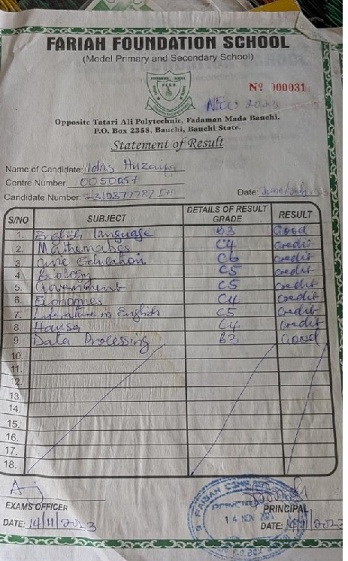 FARIAH FOUNDATION SCHOOL
(Model Primary and Secondary School)
Nº 000031
Opposite Tatari Ali Polytechnic, Fadaman Mada Bauchi.
P.O. Box 2358, Bauchi, Bauchi State.
Statement of Result
Name of Candidate:
Centre Number
Candidate Number: Date:
S/NO SUBJECT DETAILS OF RESULT GRADE RESULT
1. English language B3 Good
2. Mathematics C4 credit
3. C6 credit
4. Biology C5 credit
5. Government C5 credit
6. Economics C4 credit
7. Literature in English C5 Credit
8. Hausa C4 credit
9 Data Processing Good
10
11.
12.
13.
14.
15.
16.
17.
18.
EXAMS OFFICER PRINCIPAL
DATE: 14/11/2023 DATE: 14/11/2023
14 NOV